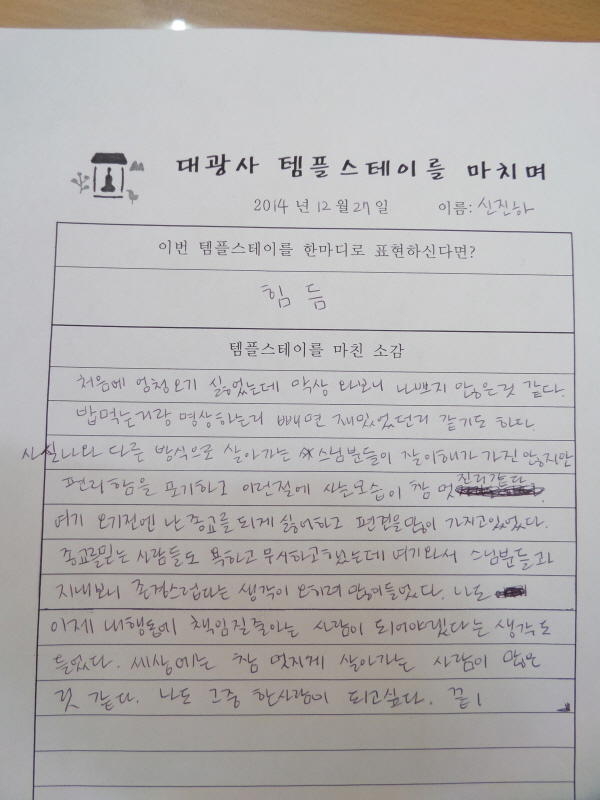 대광사 템플스테이를 마치며
2014 년 12 월 27 일 이름: 신진하
이번 템플스테이를 한마디로 표현하신다면?
힘 듬
템플스테이를 마친 소감
처음에 엄청 오기 싫었는데 막상 와보니 나쁘지 않은것 같다.
밥먹는거랑 명상하는거 빼면 재밌었던거 같기도 하다.
사실 나와 다른 방식으로 살아가는 스님분들이 잘 이해가 가진 않지만
편리함을 포기하고 이런절에 사는모습이 참 멋진거 같다.
여기 오기전엔 난 종교를 되게 싫어하고 편견을 많이 가지고있었다.
종교를믿는 사람들도 욕하고 무시하고했는데 여기와서 스님분들과
지내보니 존경스럽다는 생각이 오히려 많이들었다. 나도
이제 내행동에 책임질줄아는 사람이 되어야겠다는 생각도
들었다. 세상에는 참 멋지게 살아가는 사람이 많은
것 같다. 나도 그중 한사람이 되고싶다. 끝!